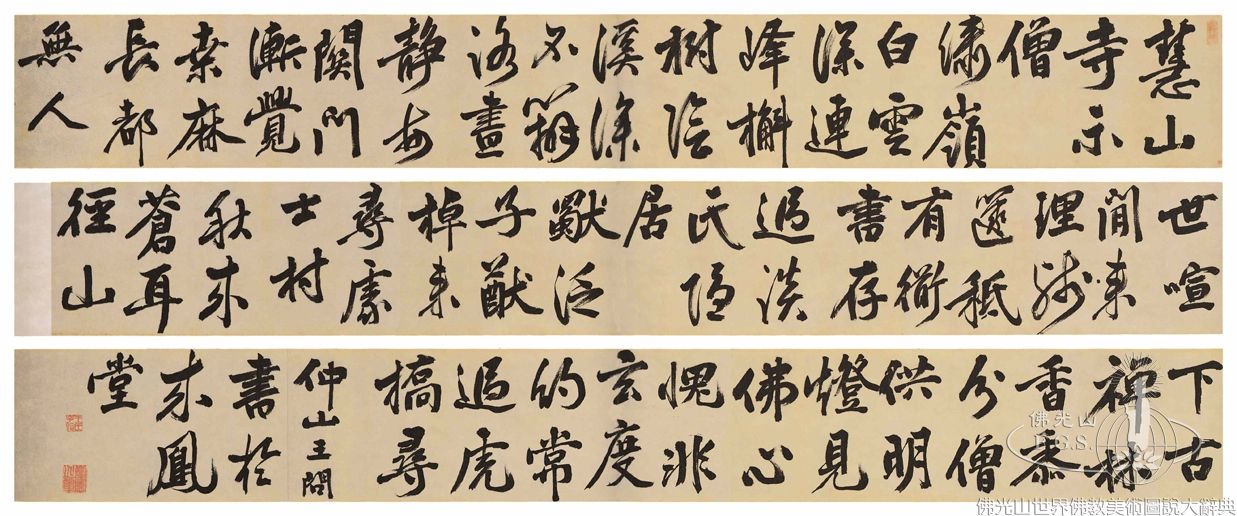 慧山
寺示
僧
繡嶺
白雲
深連
峰槲
樹陰
溪深
不辨
洛晝
靜每
關門
漸覺
桑麻
長都
無人
世喧
閒來
理殘
篋秖
有衛
書存
過談
氏隱
居
泛
子猷
棹來
尋處
士村
秋來
蒼耳
徑山
下古
禪林
香黍
分僧
供明
燈見
佛心
愧非
玄度
約常
過虎
橋尋
仲山王問
書於
來鳳
堂
佛光山
F.G.S.
佛光山世界佛教美術圖說大辭典